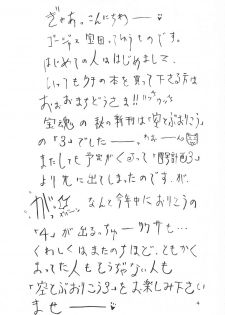 ぎゃあっこんにちわ───♡
ゴージャス宝田ってゆうものです。
はじめての人ははじめまして、
いつもウチの本を買って下さる方は
おまたまちどうさま!!
宝魂の秋の新刊は「空とぶおりこう」
の「3」でした───っ。
またしても予定がくるって「酔計画3」
より先に出てしまったのです、が、
がっなんて今年中におりこうの
「4」が出るっちゅーウワサも…
くわしくはまたのちほど、ともかく
まってた人もそうぢゃない人も
「空とぶおりこう3」をお楽しみ下さい
ませ───♡